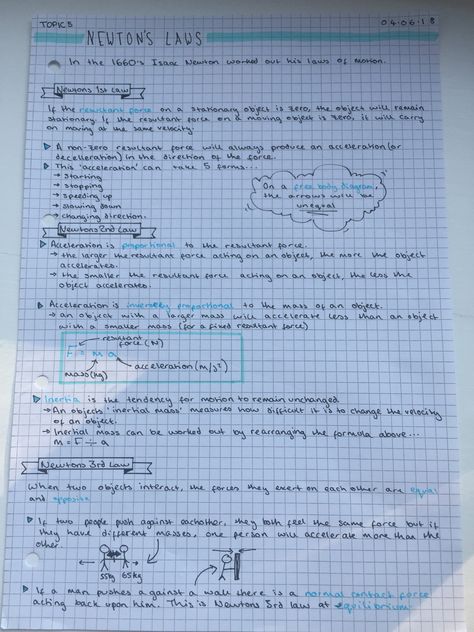 TOPIC 5
04.06.18
NEWTON'S LAWS
In the 1660's Isaac Newton worked out his laws of motion.
Newtons 1st Law
If the resultant force on a stationary object is zero, the object will remain
stationary. If the resultant force on a moving object is zero, it will carry
on moving at the same velocity.
A non-zero resultant force will always produce an acceleration (or
decelleration) in the direction of the force.
This 'acceleration' can take 5 forms...
→ starting
→ stopping
→ speeding up
→ slowing down
→ changing direction.
On a free body diagram,
the arrows will be
unequal
Newtons 2nd Law
Acceleration is proportional to the resultant force.
→ the larger the resultant force acting on an object, the more the object
accelerates.
→ the smaller the resultant force acting on an object, the less the
object accelerates.
Acceleration is inversely proportional to the mass of an object.
→ an object with a larger mass will accelerate less than an object
with a smaller mass (for a fixed resultant force)
resultant
force (N)
F = m a
mass (kg)
acceleration (m/s²)
Inertia is the tendency for motion to remain unchanged
→ An objects 'inertial mass' measures how difficult it is to change the velocity
of an object.
→ Inertial mass can be worked out by rearranging the formula above...
m = F ÷ a
Newtons 3rd Law
When two objects interact, the forces they exert on each other are equal
and opposite
If two people push against eachother, they both feel the same force but if
they have different masses, one person will accelerate more than the
other.
55kg 65kg
If a man pushes against a wall there is a normal contact force
acting back upon him. This is Newtons 3rd law at equilibrium.